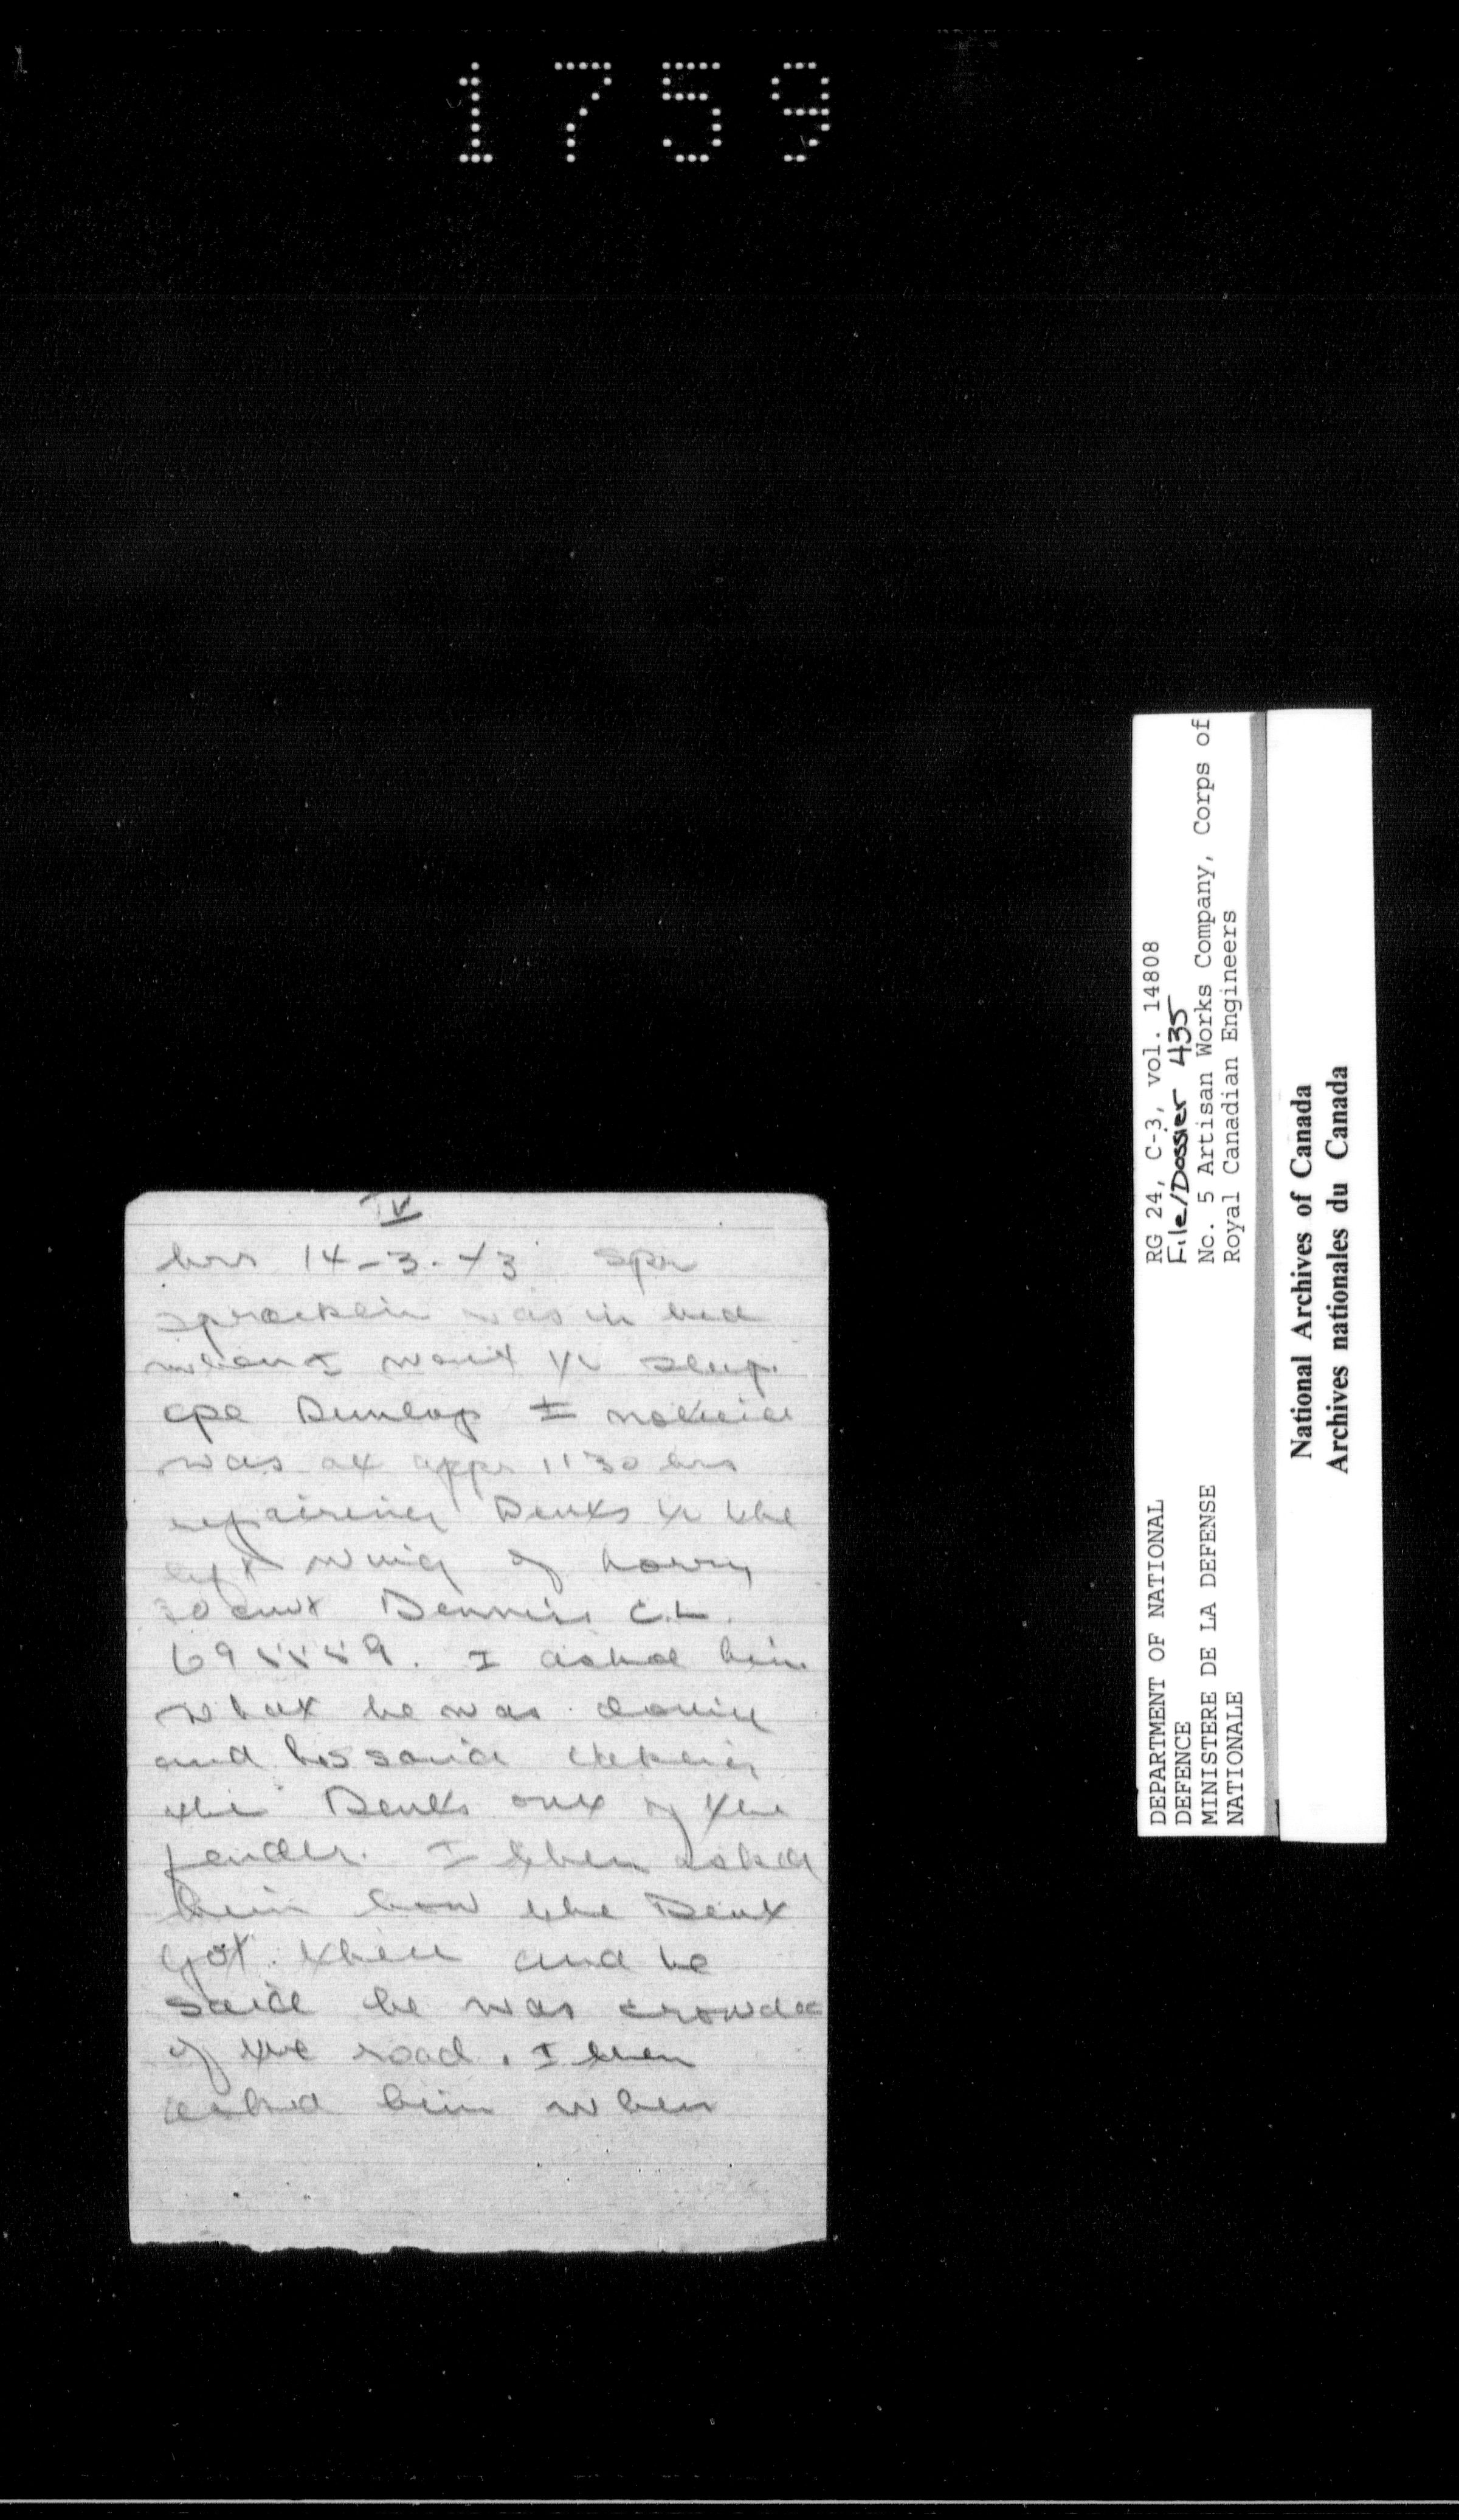 1759
IV
hrs 14-3-43 Spr
Spracklin was in bed
when I went to sleep.
Cpl Dunlop I noticed
was at appr 1130 hrs
repairing Dents to the
left wing of Lorry
30 cwt Dennis C.L.
I asked him
what he was doing
and he said taking
the Dents out of the
fender. I then asked
him how the Dent
got there and he
said he was crowded
of the road. I then
asked him when
RG 24, C-3, vol. 14808
File/Dossier 435
No. 5 Artisan Works Company, Corps of
Royal Canadian Engineers
DEPARTMENT OF NATIONAL
DEFENCE
MINISTERE DE LA DEFENSE
NATIONALE
National Archives of Canada
Archives nationales du Canada